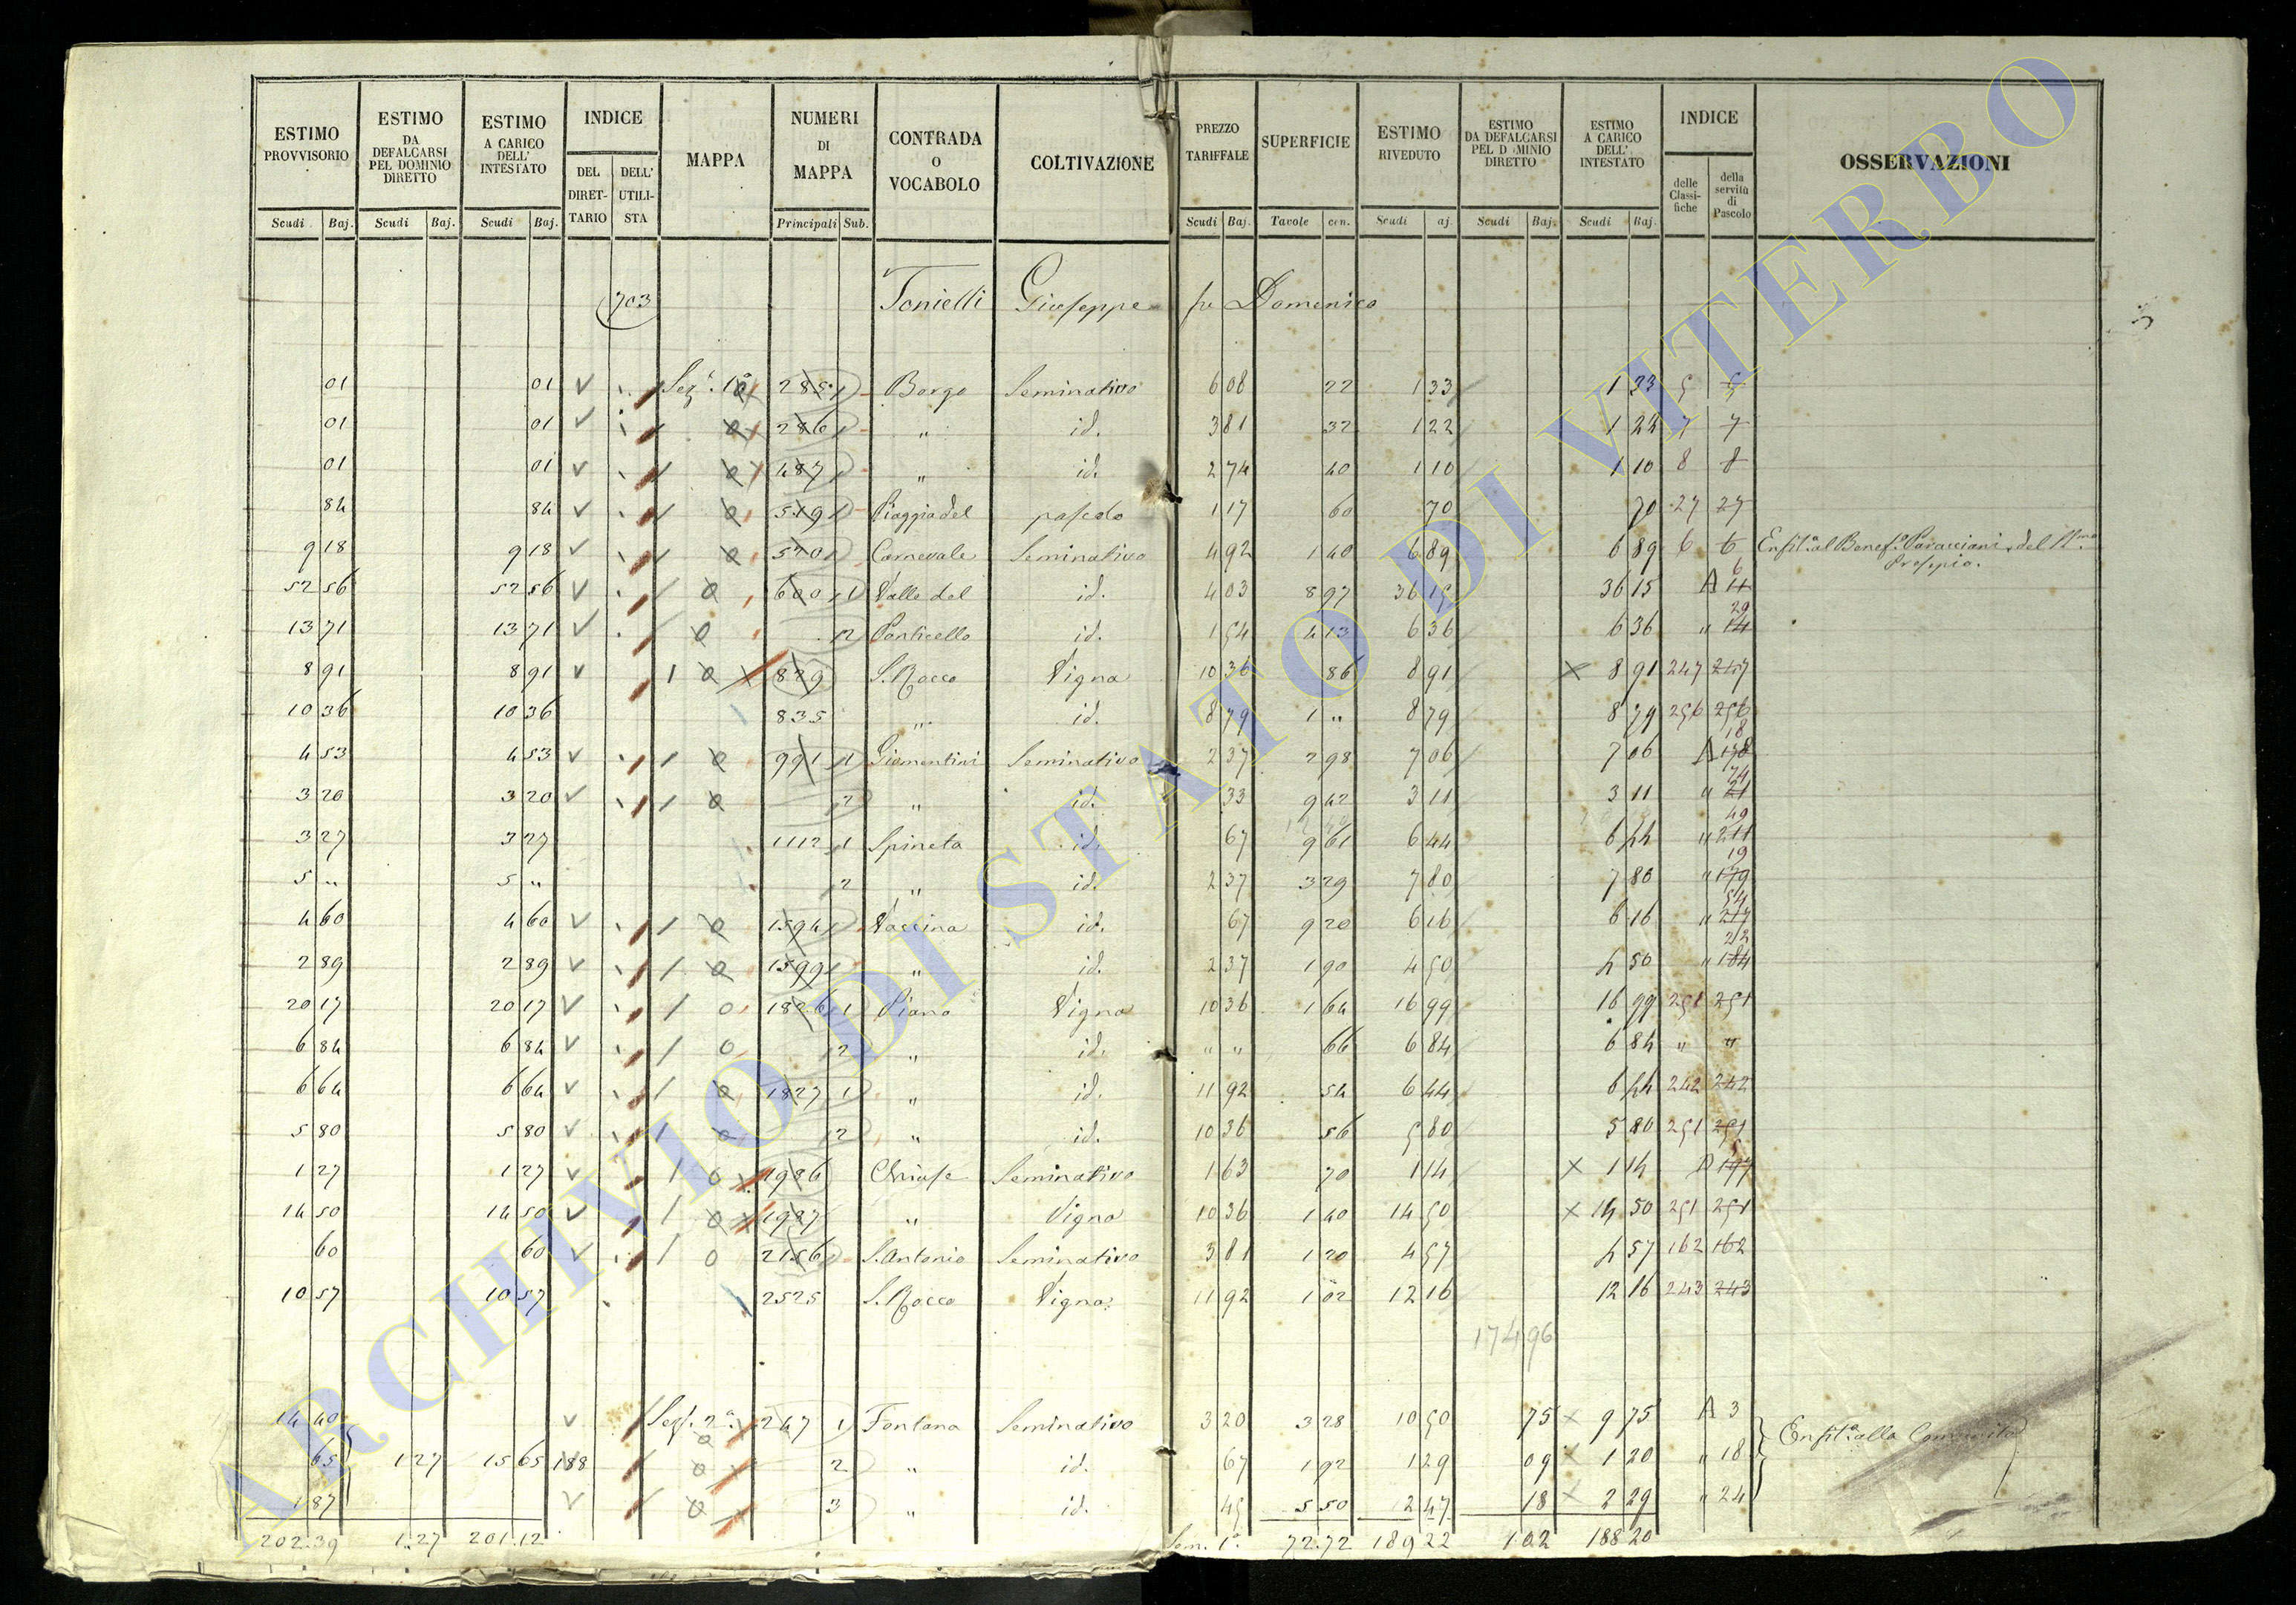 ESTIMO PROVVISORIO ESTIMO DA DEFALCARSI PEL DOMINIO DIRETTO ESTIMO A CARICO DELL' INTESTATO INDICE MAPPA NUMERI DI MAPPA CONTRADA O VOCABOLO COLTIVAZIONE PREZZO TARIFFALE SUPERFICIE ESTIMO RIVEDUTO ESTIMO DA DEFALCARSI PEL D MINIO DIRETTO ESTIMO A CARICO DELL' INTESTATO INDICE OSSERVAZIONI
DEL DIRET- TARIO DELL' UTILI- STA delle Classi- fiche della servitù di Pascolo
Scudi Baj. Scudi Baj. Scudi Baj. Principali Sub. Scudi Baj. Tavole cen. Scudi aj. Scudi Baj. Scudi Baj.
703 Tonielli Giuseppe fu Domenico
01 01 Sez. 1a 285 1 Borgo Seminativo 6 08 22 1 33 1 33 5 5
01 01 286 1 " id. 3 81 32 1 22 1 22 7 7
01 01 487 1 " id. 2 74 40 1 10 1 10 8 8
84 84 519 1 Piaggia del pascolo 1 17 60 70 70 27 27
9 18 9 18 520 1 Carnevale Seminativo 4 92 1 40 6 89 6 89 6 6 Enfit. al Benef. Paracciani del SSmo
Presepio.
52 56 52 56 600 1 Valle del id. 4 03 8 97 36 15 36 15 A 11 6
13 71 13 71 2 Ponticello id. 1 54 4 13 6 36 6 36 " 14 29
8 91 8 91 1 829 S. Rocco Vigna 10 36 86 8 91 8 91 247 247
10 36 10 36 835 " id. 8 79 1 " 8 79 8 79 256 256
4 53 4 53 1 991 1 Giomentini Seminativo 2 37 2 98 7 06 7 06 A 178 18
3 20 3 20 1 2 " id. 33 9 42 3 11 3 11 " 21 74
3 27 3 27 1112 1 Spineta id. 67 9 61 6 44 6 44 " 211 49
5 " 5 " 2 " id. 2 37 3 29 7 80 7 80 " 179 19
4 60 4 60 1 1594 1 Vaccina id. 67 9 20 6 16 6 16 " 217 54
2 89 2 89 1 1599 1 " id. 2 37 1 90 4 50 4 50 " 184 22
20 17 20 17 1 0 1826 1 Piano Vigna 10 36 1 64 16 99 16 99 251 251
6 84 6 84 1 0 2 " id. " " 66 6 84 6 84 " "
6 64 6 64 1 1827 1 " id. 11 92 54 6 44 6 44 242 242
5 80 5 80 1 2 " id. 10 36 56 5 80 5 80 251 251
1 27 1 27 1 0 1986 Chiuse Seminativo 1 63 70 1 14 1 14 A 197
14 50 14 50 1 1987 " Vigna 10 36 1 40 14 50 14 50 251 251
60 60 1 0 2156 S. Antonio Seminativo 3 81 1 20 4 57 4 57 162 162
10 57 10 57 2525 S. Rocco Vigna 11 92 1 02 12 16 12 16 243 243
174 96
14 40 Sez. 2a 247 1 Fontana Seminativo 3 20 3 28 10 50 75 9 75 A 3 Enfit. alla Comunità
65 1 27 15 65 188 2 " id. 67 1 92 1 29 09 1 20 " 18
1 87 3 " id. 45 5 50 2 47 18 2 29 " 24
202.39 1.27 201.12 Som. 1a 72.72 189 22 1.02 188 20
ARCHIVIO DI STATO DI VITERBO